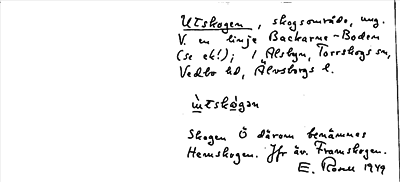 Utskogen, skogsområde, ung.
V. en linje Backarne-Boden
(se ek!); i Alsbyn, Torrskogs sn,
Vedbo hd, Älvsborgs l.
ùtskógan
Skogen Ö därom benämnes
Hemskogen. Jfr äv. Framskogen.
E. Rosell 1949